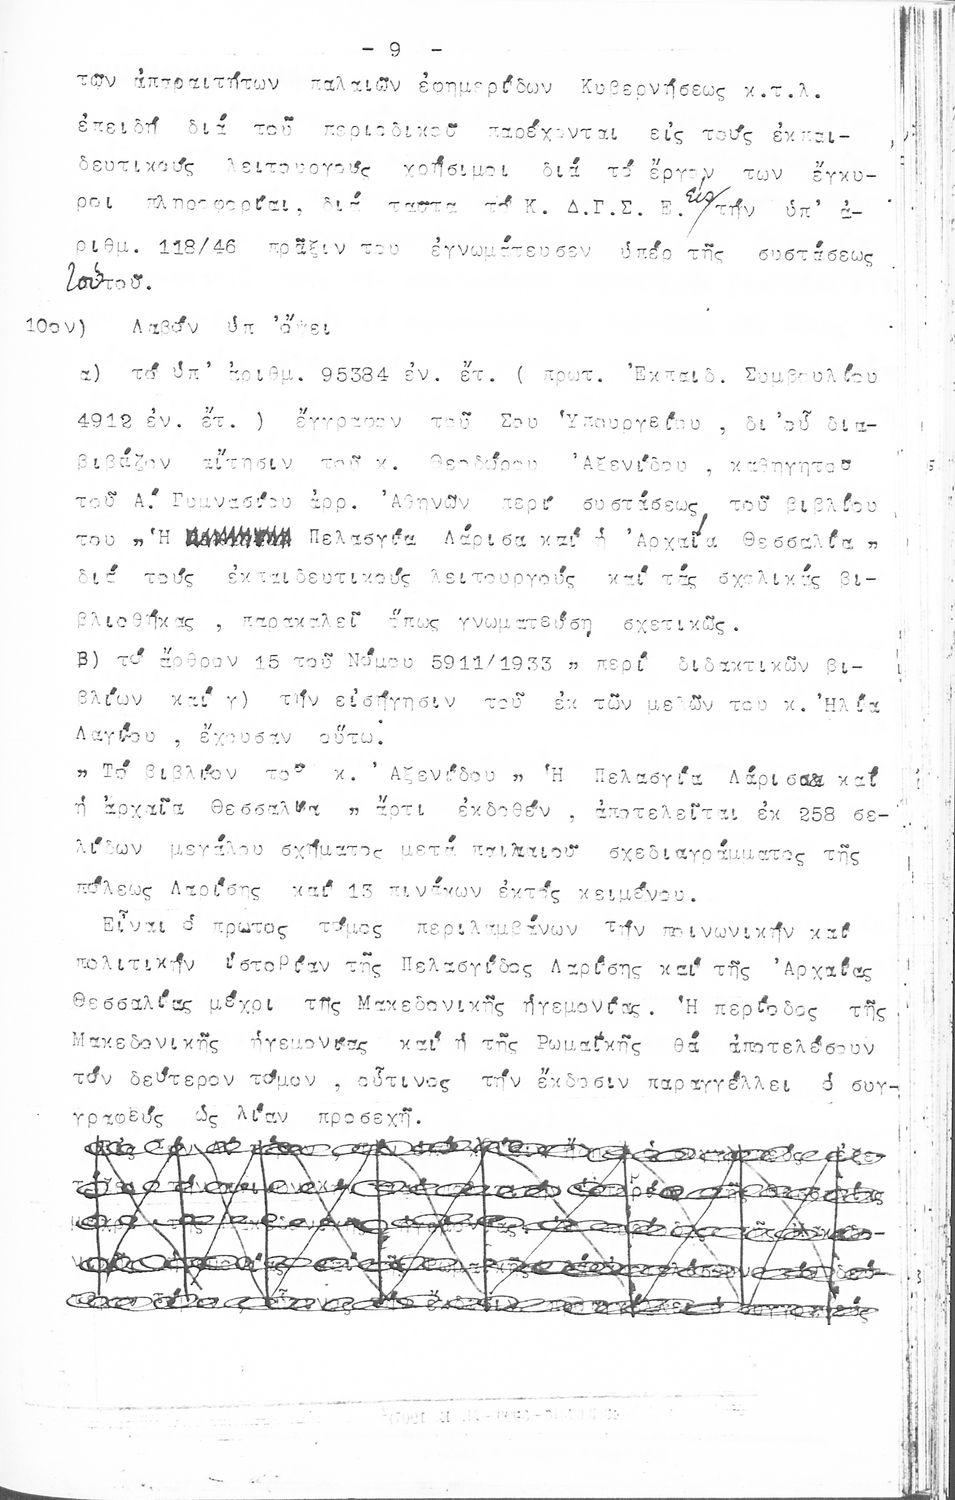 - 9 -
τῶν ἀπαραιτήτων παλαιῶν ἐφημερίδων Κυβερνήσεως κ.τ.λ.
ἐπειδή διά τοῦ περιοδικοῦ παρέχονται εἰς τούς ἐκπαι-
δευτικούς λειτουργούς χρήσιμοι διά τό ἔργον των ἔγκυ-
ροι πληροφορίαι, διά ταῦτα τό Κ. Δ.Γ.Σ. Ε. εἰς τήν ὑπ' ἀ-
ριθμ. 118/46 πρᾶξιν του ἐγνωμάτευσεν ὑπέρ τῆς συστάσεως
τούτου.
10ον) Λαβόν ὑπ 'ὄψει
α) τό ὑπ' ἀριθμ. 95384 ἐν. ἔτ. ( πρωτ. Ἐκπαιδ. Συμβουλίου
4912 ἐν. ἔτ. ) ἔγγραφον τοῦ Σου Ὑπουργείου , δι'οὗ δια-
βιβάζον αἴτησιν τοῦ κ. Θεοδώρου Ἀξενίδου , καθηγητοῦ
τοῦ Α΄ Γυμνασίου ἀρρ. Ἀθηνῶν περί συστάσεως τοῦ βιβλίου
του „Ἡ Πελασγία Λάρισα καί ἡ Ἀρχαία Θεσσαλία „
διά τούς ἐκπαιδευτικούς λειτουργούς καί τάς σχολικάς βι-
βλιοθήκας , παρακαλεῖ ὅπως γνωματεύση σχετικῶς.
β) τό ἄρθρον 15 τοῦ Νόμου 5911/1933 „ περί διδακτικῶν βι-
βλίων καί γ) τήν εἰσήγησιν τοῦ ἐκ τῶν μελῶν του κ. Ἠλία
Λαγίου , ἔχουσαν οὕτω:
„ Τό βιβλίον τοῦ κ. Ἀξενίδου „ Ἡ Πελασγία Λάρισα καί
ἡ ἀρχαῖα Θεσσαλία „ ἄρτι ἐκδοθέν , ἀποτελεῖται ἐκ 258 σε-
λίδων μεγάλου σχήματος μετά παλαιοῦ σχεδιαγράμματος τῆς
πόλεως Λαρίσης καί 13 πινάκων ἐκτός κειμένου.
Εἶναι ὁ πρῶτος τόμος περιλαμβάνων τήν κοινωνικήν καί
πολιτικήν ἱστορίαν τῆς Πελασγίδος Λαρίσης καί τῆς Ἀρχαίας
Θεσσαλίας μέχρι τῆς Μακεδονικῆς ἡγεμονίας. Ἡ περίοδος τῆς
Μακεδονικῆς ἡγεμονίας καί ἡ τῆς Ρωμαϊκῆς θά ἀποτελέσουν
τόν δεύτερον τόμον , οὗτινος τήν ἔκδοσιν παραγγέλλει ὁ συγ-
γραφεύς ὡς λίαν προσεχῆ.